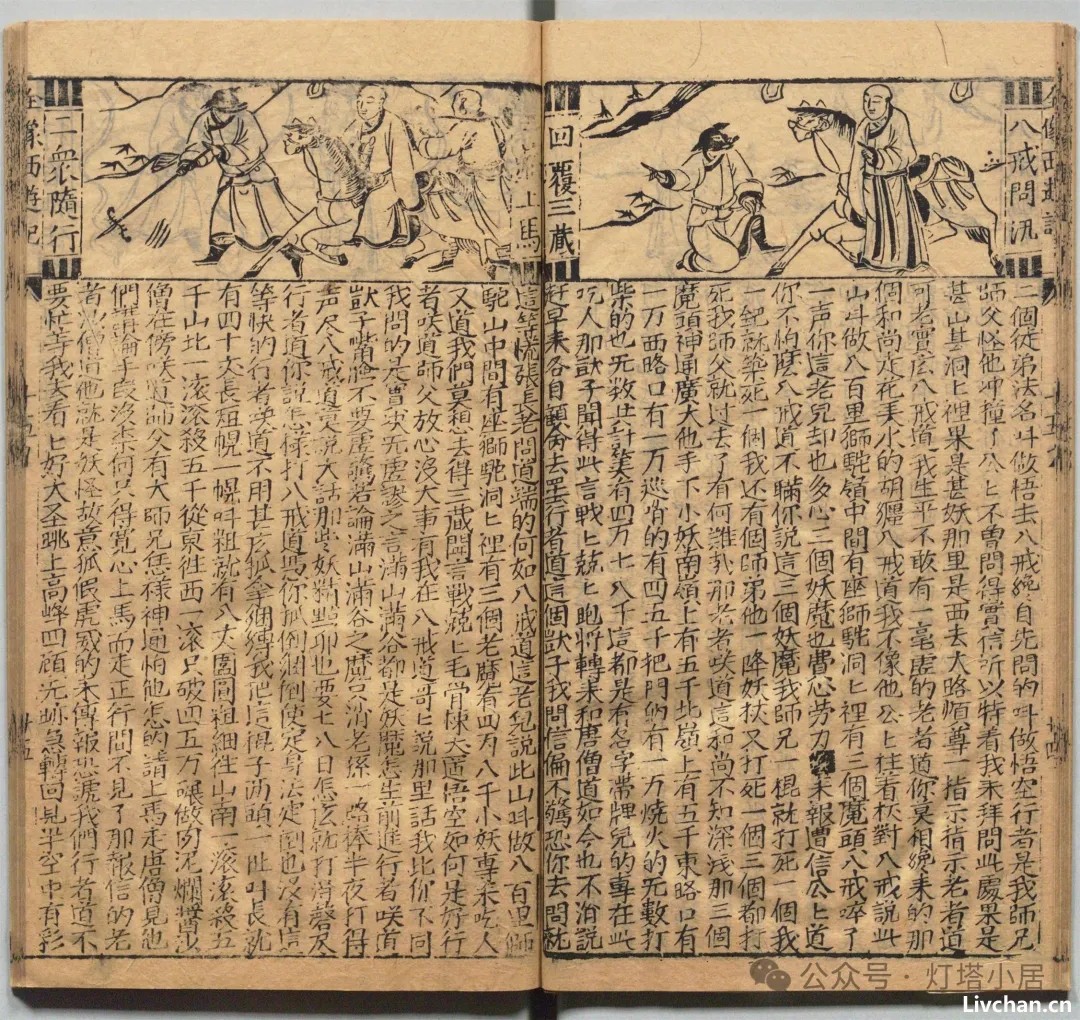 全像西遊記
八戒問汛
回覆三藏
二個徒弟法名叫做悟去八戒纔自先問的叫做悟空行者是我師兄
師父怪他冲撞了公〻不曾問得實信所以特着我來拜問此處果是
甚山甚洞〻裡果是甚妖那里是西去大路煩尊一指示指示老者道
可老實庅八戒道我生平不敢有一毫虚的老者道你莫相纔來的那
個和尚走花美水的胡纏八戒道我不像他公〻拄着杖對八戒說此
山叫做八百里獅駝嶺中間有座獅駝洞〻裡有三個魔頭八戒啐了
一声你這老兒却也多心三個妖魔也費心劳力來報遭信公〻道
你不怕麽八戒道不瞞你說這三個妖魔我師兄一棍就打死一個我
一鈀就築死一個我还有個師弟他一降妖杖又打死一個三個都打
死我師父就過去了有何難哉那老者咲道這和尚不知深浅那三個
魔頭神通廣大他手下小妖南嶺上有五千北嶺上有五千東路口有
一万西路口有一万巡哨的有四五千把門的有一万燒火的无數打
柴的也无数共計筭有四万七八千這都是有名字帶牌兒的專在此
吃人那獃子聞得此言戰〻兢〻跑將轉來和唐僧道如今也不消說
趕早來各自顧命去罷行者道這個獃子我問信偏不驚恐你去問就
上馬
二衆隨行
全像西遊記
這等慌張長老問道端的何如八戒道這老兒說此山叫做八百里獅
駝山中間有座獅駝洞〻裡有三個老魔有四万八千小妖專來吃人
又道我們莫想去得三藏聞言戰兢〻毛骨悚然道悟空如何是好行
者咲道師父放心沒大事有我在八戒道哥〻說那里話我比你不同
我問的是曹決无虚謬之言滿山滿谷都是妖魔怎生前進行者咲道
獃子嘴臉不要虚謊若論滿山滿谷之魔只消老孫一路棒半夜打得
声尽八戒道莫說大話那些妖精點卯也要七八日怎庅就打得罄尽
行者道你說怎樣打八戒道凴你抓倒綑倒使定身法定倒也沒有這
等快的行者咲道不用甚庅抓拿綑縛我把這棍子两頭一扯叫長就
有四十丈長短幌一幌叫粗就有八丈圍圓粗細徃山南一滾滾殺五
千山北一滾滾殺五千從東徃西一滾只破四五万碾做肉泥爛醬沙
僧在傍咲道師父有大師兄恁樣神通怕他怎的請上馬走唐僧見他
們講論手段沒奈何只得寬心上馬而走正行間不見了那報信的老
者沙僧道他就是妖怪故意狐假虎威的來傳報恐諕我們行者道不
要忙等我去看〻好大圣跳上高峰四顧无跡急轉回見半空中有彩
公众号·灯塔小居
Livchan.cn